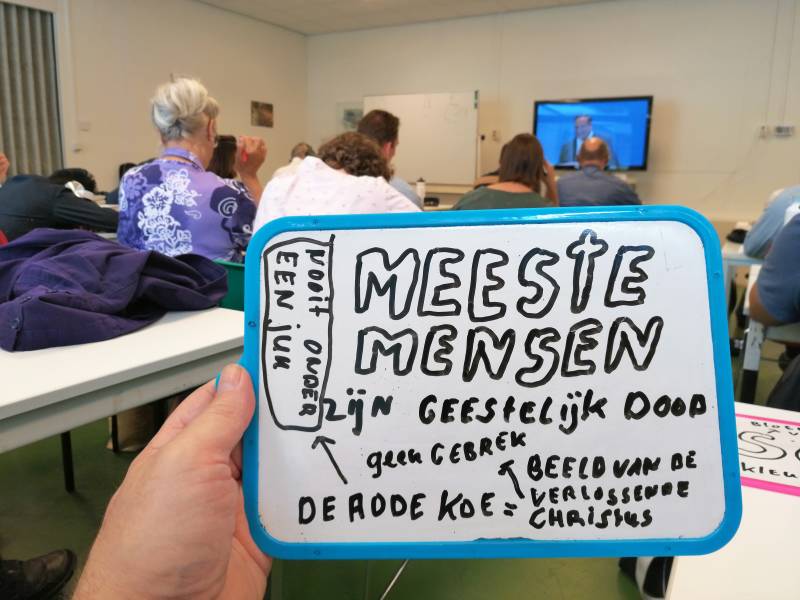 MEESTE
MENSEN
ZIJN GEESTELIJK DOOD
NOOIT ONDER
EEN JUK
geen GEBREK
DE RODE KOE =
BEELD VAN DE
VERLOSSENDE
CHRISTUS
KLEU